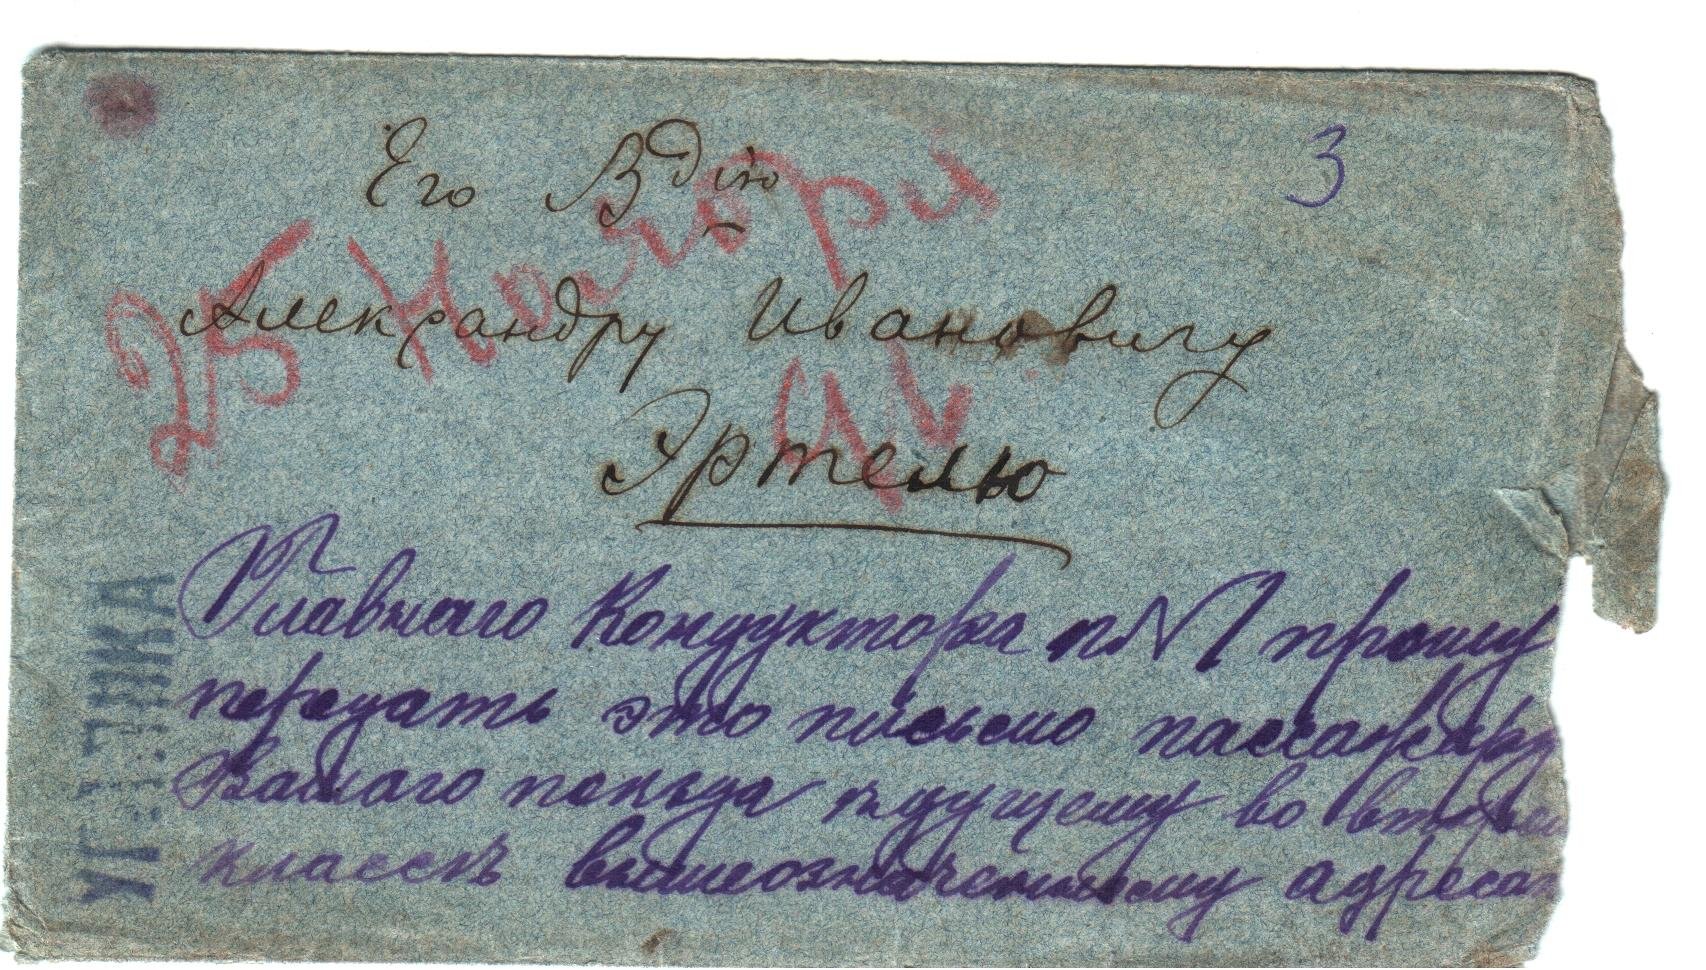 3
Его Вдію
25 Ногори
Александру Ивановичу
Эртелю
Главнаго Кондуктора п№1 прошу
передать это письмо пассажиру
Вашаго поезда едущему во втором
классѣ вышеозначенному адресат